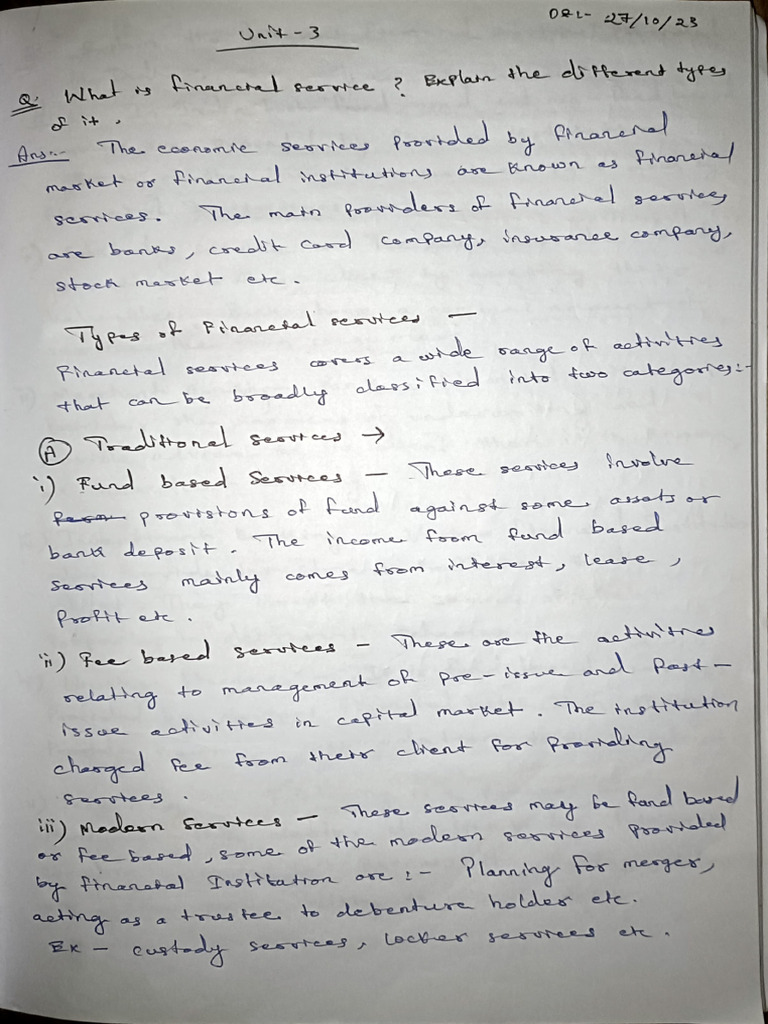 Unit - 3
27/10/23
Q. What is financial service ? Explain the different types
of it.
Ans:- The economic services provided by financial
market or financial institutions are known as financial
services. The main providers of financial services
are banks, credit card company, insurance company,
stock market etc.
Types of Financial services —
Financial services covers a wide range of activities
that can be broadly classified into two categories:-
(A) Traditional services →
i) Fund based Services — These services involve
provisions of fund against some assets or
bank deposit. The income from fund based
services mainly comes from interest, lease,
Profit etc.
ii) Fee based services — These are the activities
relating to management of pre-issue and Post-
issue activities in capital market. The institution
charged fee from their client for Providing
services.
iii) Modern Services — These services may be fund based
or fee based, some of the modern services provided
by financial Institution are :- Planning for merger,
acting as a trustee to debenture holder etc.
Ex — custody services, locker services etc.